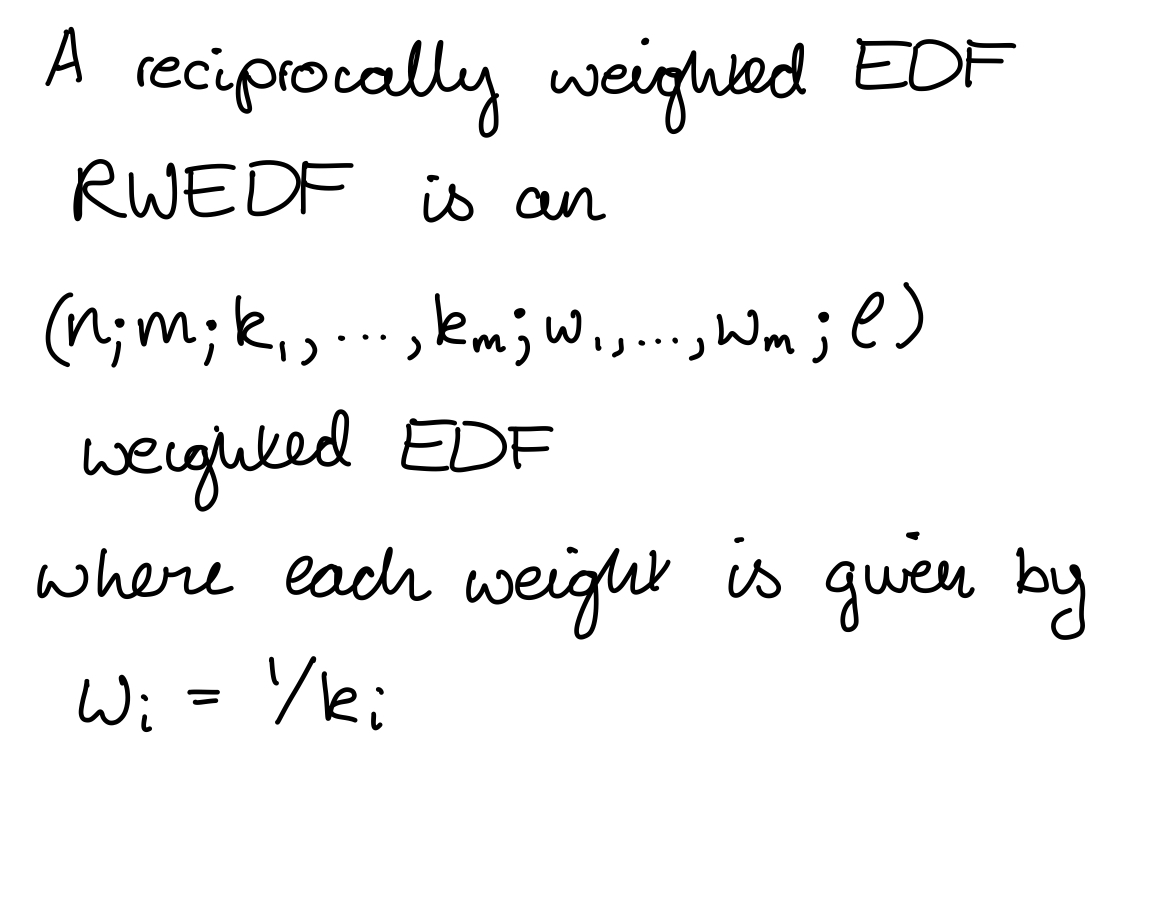 A reciprocally weighted EDF
RWEDF is an
(n; m; k₁, ..., kₘ; w₁, ..., wₘ; ℓ)
weighted EDF
where each weight is given by
wᵢ = 1/kᵢ